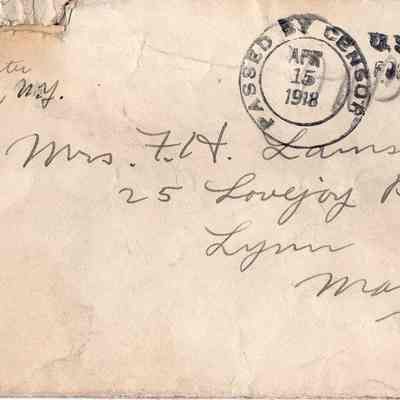 PASSED BY CENSOR
APR
15
1918
U.S
N.Y.
Mrs. F. H. Lams
25 Lovejoy
Lynn
Ma